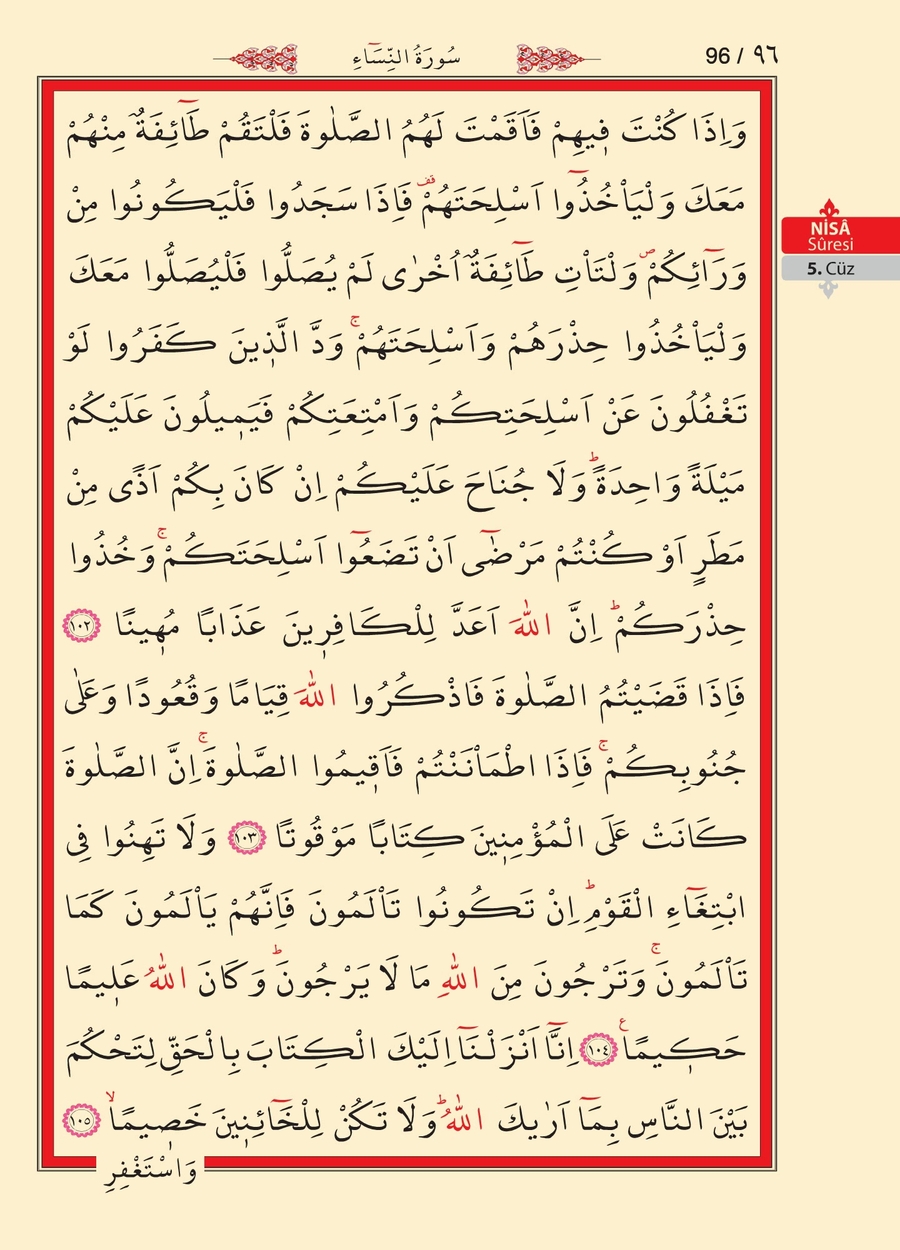 سُورَةُ النِّسَٓاءِ
96 / ٩٦
وَاِذَا كُنْتَ ف۪يهِمْ فَاَقَمْتَ لَهُمُ الصَّلٰوةَ فَلْتَقُمْ طَٓائِفَةٌ مِنْهُمْ
مَعَكَ وَلْيَأْخُذُٓوا اَسْلِحَتَهُمْ۠ فَاِذَا سَجَدُوا فَلْيَكُونُوا مِنْ
وَرَٓائِكُمْۖ وَلْتَأْتِ طَٓائِفَةٌ اُخْرٰى لَمْ يُصَلُّوا فَلْيُصَلُّوا مَعَكَ
وَلْيَأْخُذُوا حِذْرَهُمْ وَاَسْلِحَتَهُمْۚ وَدَّ الَّذ۪ينَ كَفَرُوا لَوْ
تَغْفُلُونَ عَنْ اَسْلِحَتِكُمْ وَاَمْتِعَتِكُمْ فَيَم۪يلُونَ عَلَيْكُمْ
مَيْلَةً وَاحِدَةًۜ وَلَا جُنَاحَ عَلَيْكُمْ اِنْ كَانَ بِكُمْ اَذًى مِنْ
مَطَرٍ اَوْ كُنْتُمْ مَرْضٰٓى اَنْ تَضَعُٓوا اَسْلِحَتَكُمْۚ وَخُذُوا
حِذْرَكُمْۜ اِنَّ اللّٰهَ اَعَدَّ لِلْكَافِر۪ينَ عَذَابًا مُه۪ينًا ﴿١٠٢﴾
فَاِذَا قَضَيْتُمُ الصَّلٰوةَ فَاذْكُرُوا اللّٰهَ قِيَامًا وَقُعُودًا وَعَلٰى
جُنُوبِكُمْۚ فَاِذَا اطْمَأْنَنْتُمْ فَاَق۪يمُوا الصَّلٰوةَۚ اِنَّ الصَّلٰوةَ
كَانَتْ عَلَى الْمُؤْمِن۪ينَ كِتَابًا مَوْقُوتًا ﴿١٠٣﴾ وَلَا تَهِنُوا فِى
ابْتِغَٓاءِ الْقَوْمِۜ اِنْ تَكُونُوا تَأْلَمُونَ فَاِنَّهُمْ يَأْلَمُونَ كَمَا
تَأْلَمُونَۚ وَتَرْجُونَ مِنَ اللّٰهِ مَا لَا يَرْجُونَۜ وَكَانَ اللّٰهُ عَل۪يمًا
حَك۪يمًا۟ ﴿١٠٤﴾ اِنَّٓا اَنْزَلْنَٓا اِلَيْكَ الْكِتَابَ بِالْحَقِّ لِتَحْكُمَ
بَيْنَ النَّاسِ بِمَٓا اَرٰيكَ اللّٰهُۜ وَلَا تَكُنْ لِلْخَٓائِن۪ينَ خَص۪يمًاۙ ﴿١٠٥﴾
وَاسْتَغْفِرِ
NİSÂ
Sûresi
5. Cüz